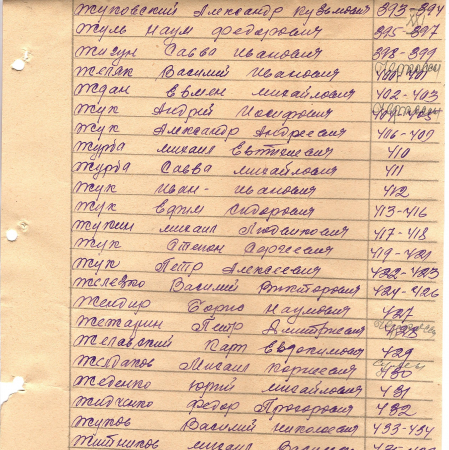 Жуковский Александр Кузьмович 393-394
Жуль Наум Федорович 395-397
Жигун Савва Иванович 398-399
Жегак Василий Иванович 400-401
Ждан Евмен Михайлович 402-403
Жук Андрей Иосифович 404-405
Жук Александр Андреевич 406-407
Журба Михаил Евтихиевич 410
Журба Савва Михайлович 411
Жук Иван Иванович 412
Жук Ефим Сидорович 413-416
Жукин Михаил 417-418
Жук Степан Сергеевич 419-421
Жук Петр Алексеевич 422-423
Железко Василий Викторович 424-426
Жендир Борис Наумович 427
Жежарин Петр Дмитриевич 428
Жегавский Карп Евдокимович 429
Желдаков Михаил Корнеевич 430
Жеденко Юрий Михайлович 431
Жидченко Федор Прохорович 432
Жуков Василий Николаевич 433-434
Житников Михаил